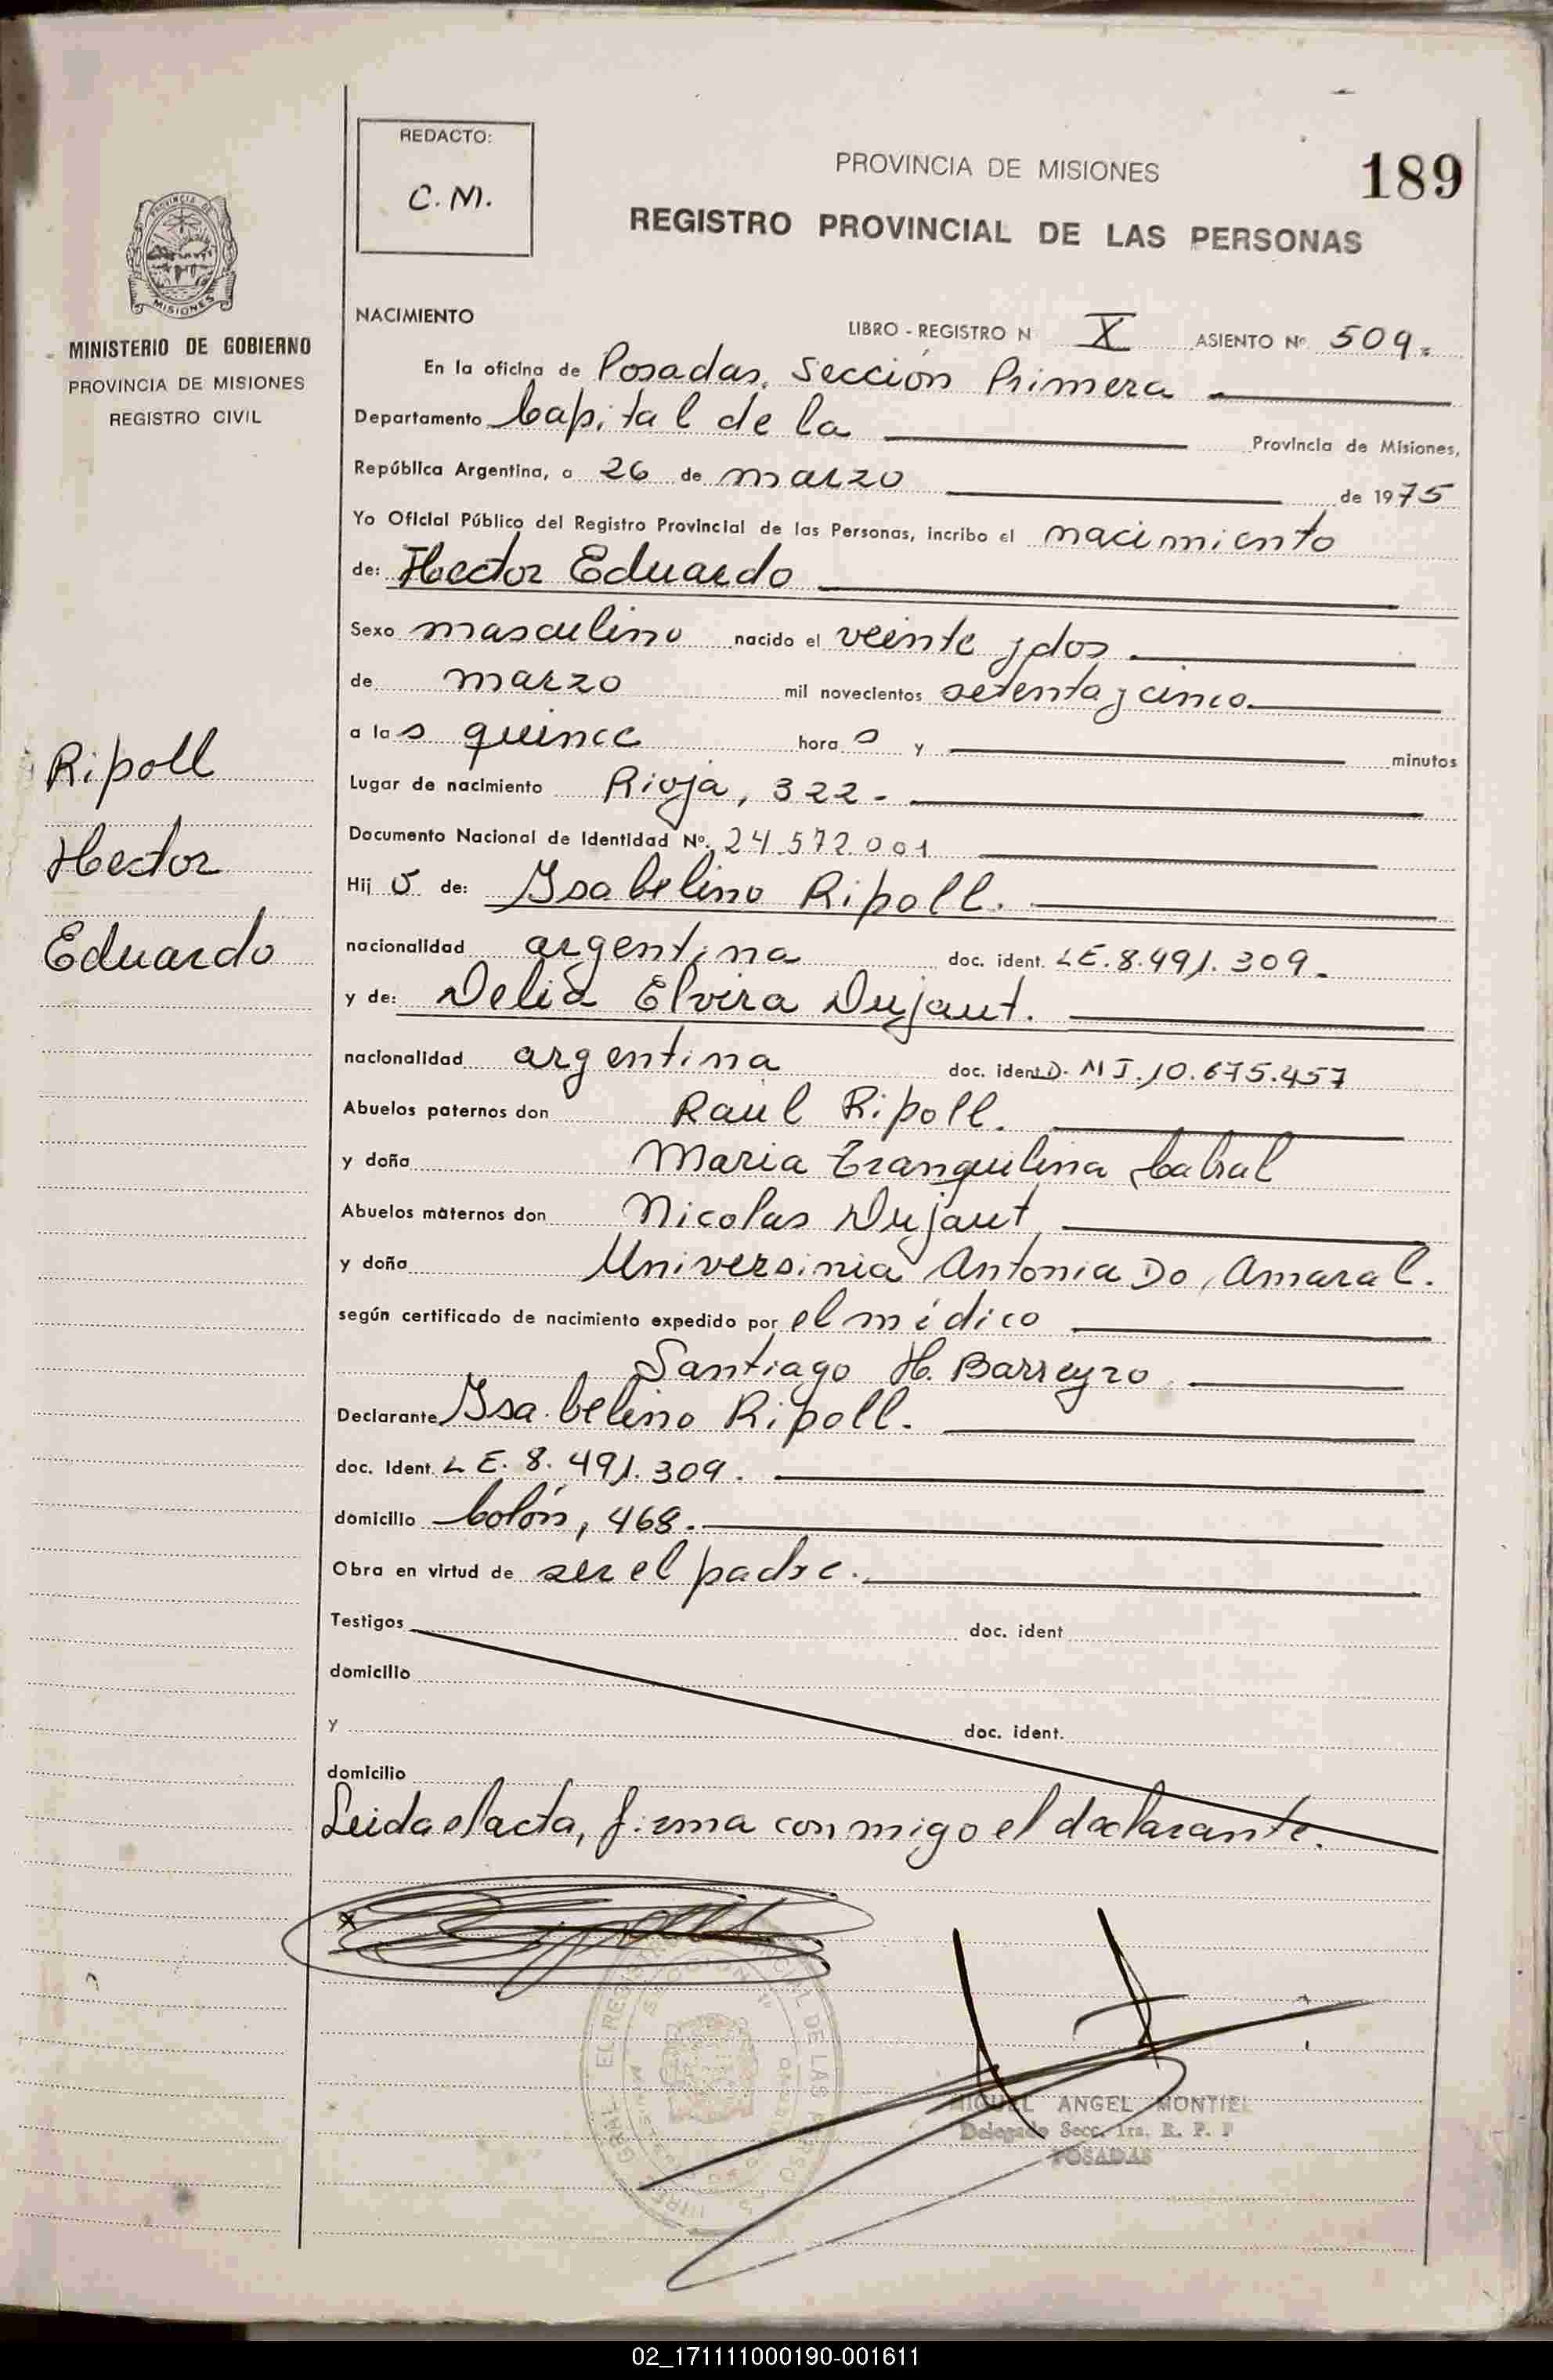 REDACTO:
C. M.
PROVINCIA DE MISIONES
189
REGISTRO PROVINCIAL DE LAS PERSONAS
MISIONES
MINISTERIO DE GOBIERNO
PROVINCIA DE MISIONES
REGISTRO CIVIL
Ripoll
Hector
Eduardo
NACIMIENTO
LIBRO - REGISTRO N X ASIENTO Nº 509.
En la oficina de Posadas, Sección Primera
Departamento Capital de la Provincia de Misiones,
República Argentina, a 26 de marzo de 1975
Yo Oficial Público del Registro Provincial de las Personas, incribo el nacimiento
de: Hector Eduardo
Sexo masculino nacido el veinte y dos
de marzo mil novecientos setenta y cinco.
a las quince horas y minutos
Lugar de nacimiento Rioja, 322.-
Documento Nacional de Identidad Nº. 24.572.001
Hijo de: Isabelino Ripoll.
nacionalidad argentina doc. ident. LE. 8.491.309.-
y de: Delia Elvira Dujaut.
nacionalidad argentina doc. ident D. N I. 10.675.457
Abuelos paternos don Raul Ripoll.
y doña Maria Tranquilina Cabral
Abuelos maternos don Nicolas Dujaut
y doña Universinia Antonia Do, Amaral.
según certificado de nacimiento expedido por el médico
Santiago H. Barreyro
Declarante Isabelino Ripoll.
doc. Ident. L E. 8. 491. 309.
domicilio Colón, 468.
Obra en virtud de ser el padre.
Testigos doc. ident
domicilio
y doc. ident.
domicilio
Leida el acta, firma conmigo el declarante.
MIGUEL ANGEL MONTIEL
Delegado Secc. 1ra. R. P. P
POSADAS
02_171111000190-001611